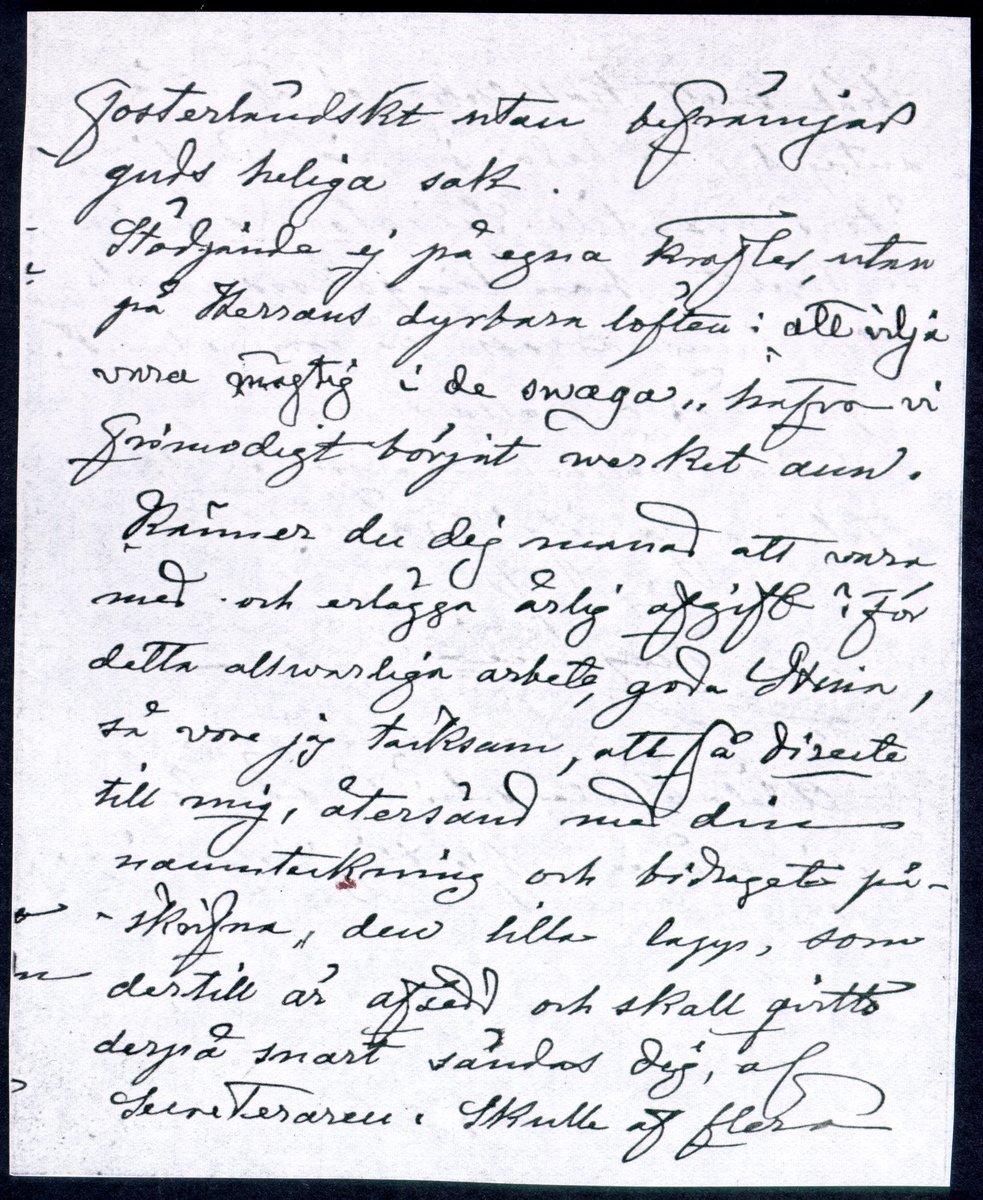 fosterländskt utan befrämjad
guds heliga sak.
Stödjande ej på egna krafter, utan
på Herrans dyrbara löften: att vilja
vara mägtig i de swaga„ hafva vi
frimodigt börjat werket ann.
Känner du dig manad att vara
med och erlägga årlig afgift för
detta allvarliga arbete, goda Stina,
så vore jag tacksam, att få directe
till mig, återsänd med din
namnteckning och bidraget på-
-skrifna„ den lilla lapp, som
dertill är afsedd och skall qvitto
derpå snart sändas dig, af
Secreteraren. Skulle af flera